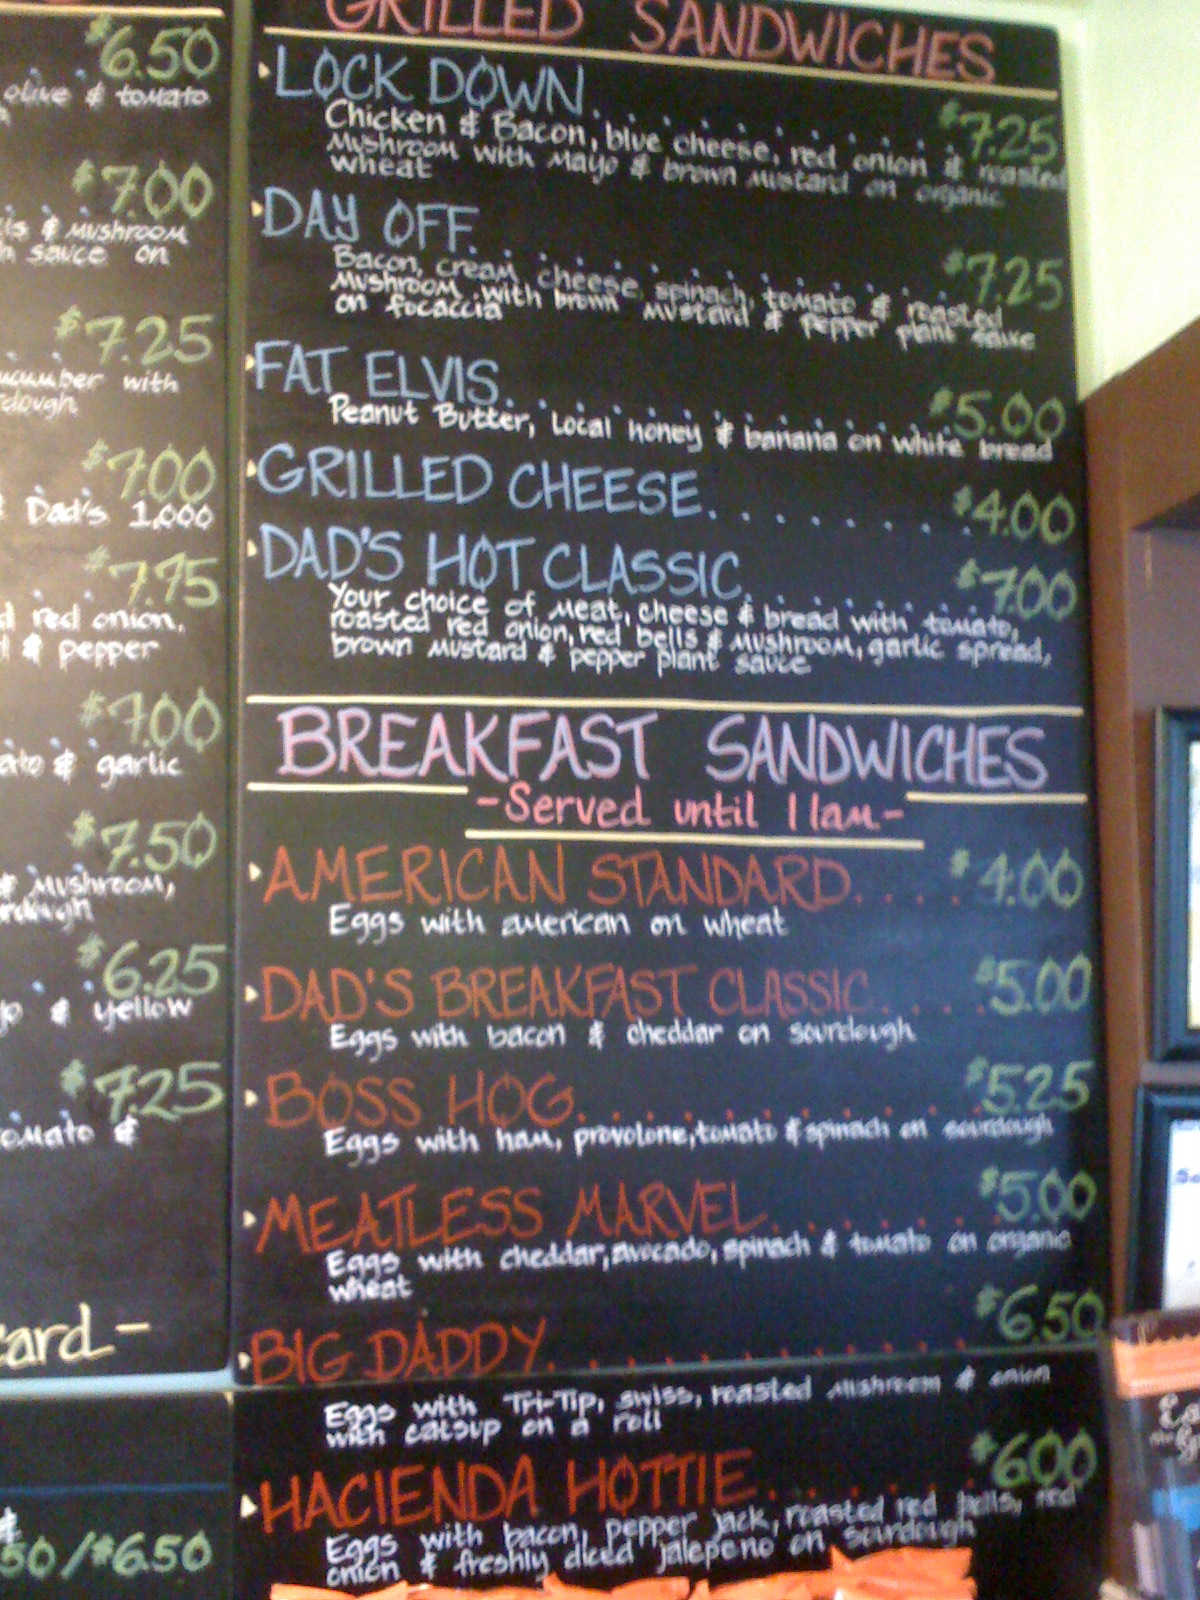 $6.50
olive & tomato
$7.00
& mushroom
sauce on
$7.25
with
$7.00
Dad's 1,000
$7.75
red onion,
& pepper
$7.00
& garlic
$7.50
& mushroom,
$6.25
& yellow
$7.25
&
/$6.50
GRILLED SANDWICHES
LOCK DOWN. . . . . . . . . $7.25
Chicken & Bacon, blue cheese, red onion & roasted
mushroom with mayo & brown mustard on organic
wheat
DAY OFF. . . . . . . . . . $7.25
Bacon, cream cheese, spinach, tomato & roasted
mushroom with brown mustard & pepper plant sauce
on focaccia
FAT ELVIS. . . . . . . . . $5.00
Peanut Butter, local honey & banana on white bread
GRILLED CHEESE. . . . . . . . $4.00
DAD'S HOT CLASSIC. . . . . . $7.00
Your choice of meat, cheese & bread with tomato,
roasted red onion, red bells & mushroom, garlic spread,
brown mustard & pepper plant sauce
BREAKFAST SANDWICHES
-Served until 11am-
AMERICAN STANDARD. . . . $4.00
Eggs with american on wheat
DAD'S BREAKFAST CLASSIC. . . . $5.00
Eggs with bacon & cheddar on sourdough
BOSS HOG. . . . . . . . . $5.25
Eggs with ham, provolone, tomato & spinach on sourdough
MEATLESS MARVEL. . . . . . $5.00
Eggs with cheddar, avocado, spinach & tomato on organic
wheat
BIG DADDY. . . . . . . . . . $6.50
Eggs with Tri-Tip, swiss, roasted mushroom & onion
with catsup on a roll
HACIENDA HOTTIE. . . . . . $6.00
Eggs with bacon, pepper jack, roasted red bells, red
onion & freshly diced jalepeno on sourdough